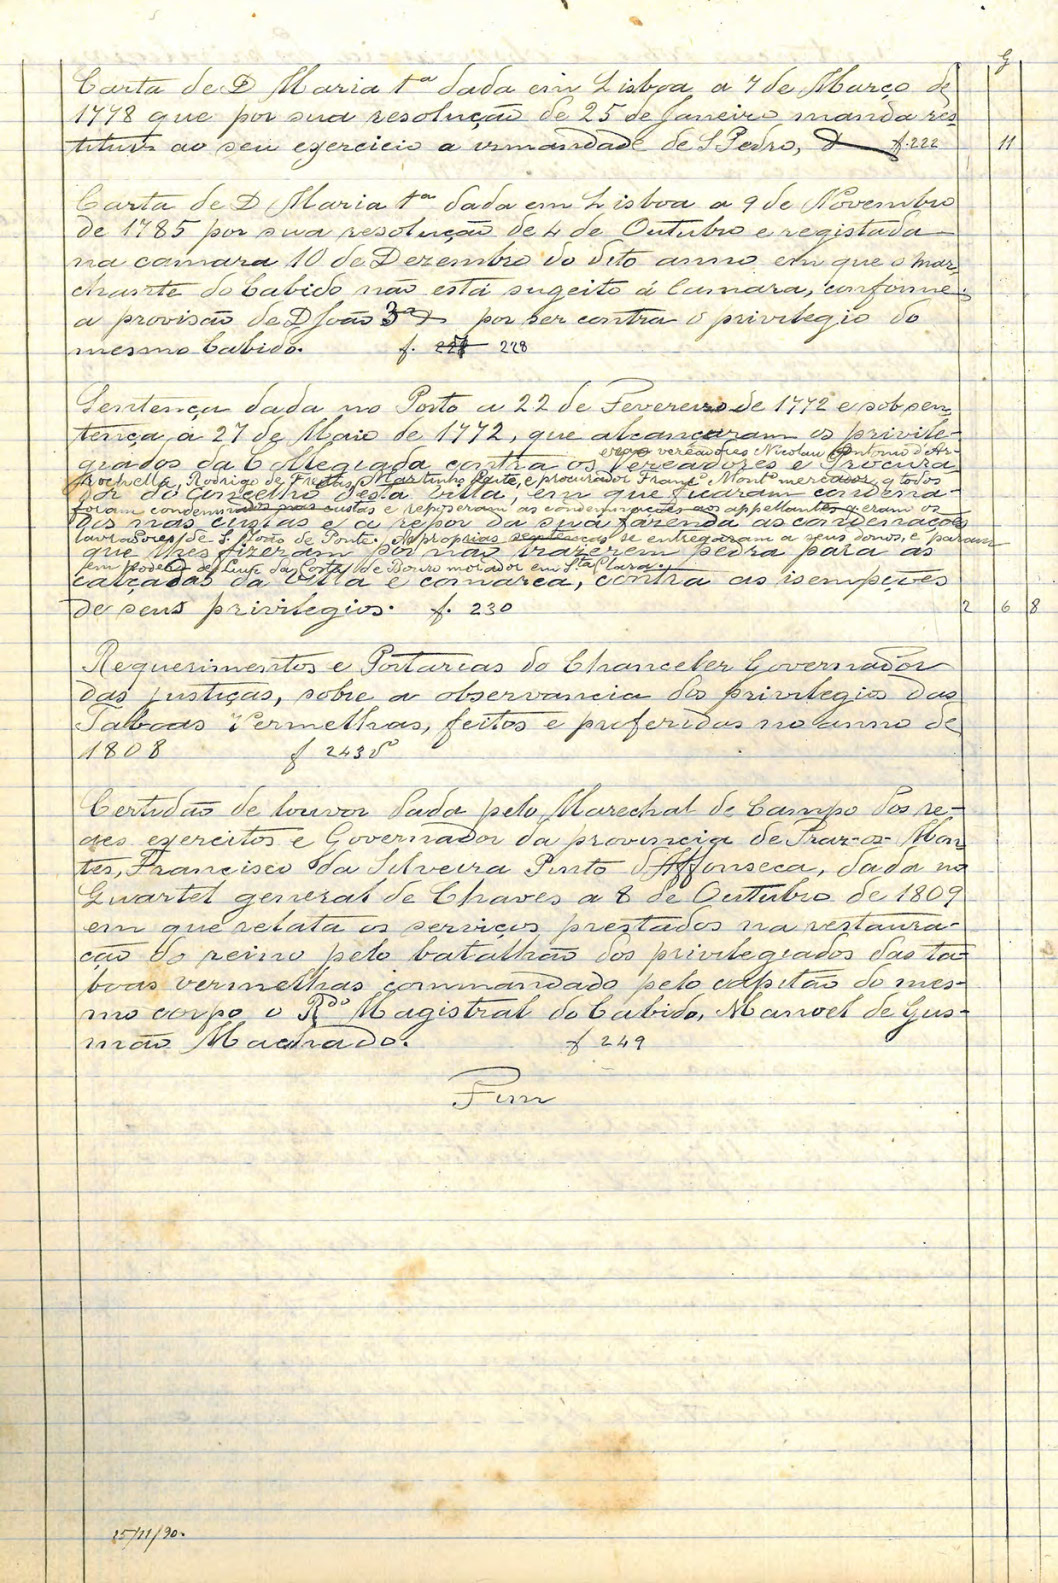 G
Carta de D Maria 1ª dada em Lisboa a 7 de Março de
1778 que por sua resolução de 25 de Janeiro manda res-
tituir ao seu exercicio a irmandade de S Pedro, f. 222 11
Carta de D Maria 1ª dada em Lisboa a 9 de Novembro
de 1785 por sua resolução de 4 de Outubro e registada
na camara 10 de Dezembro do dito anno em que o mar-
chante do Cabido não está sugeito á Camara, conforme
a provisão de D João 3º por ser contra o privilegio do
mesmo Cabido. f. 228
Sentença dada no Porto a 22 de Fevereiro de 1772 e sobsen-
tença a 27 de Maio de 1772, que alcançaram os privile-
vereadores Nicolau Antonio d'Ar-
giados da Collegiada contra os Vereadores e Procura
rochella, Rodrigo de Freitas, Martinho, e procurador Franc.º Mont.º mercador, q todos
dor do Concelho desta villa, em que ficaram condena-
foram condemnados nas custas e repuseram as condemnações aos appellantes q eram os
dos nas custas e a repor da sua fazenda as condenações
lavradores de S. João de Ponte. As proprias sentenças se entregaram a seus donos, e param
que lhes fizeram por não trazerem pedra para as
em poder de Luiz da Costa, de Bouro morador em S.ta Clara
calçadas da villa e comarca, contra as isempções
de seus privilegios. f. 230 2 6 8
Requerimentos e Portarias do Chanceler Governador
das justiças, sobre a observancia dos privilegios das
Taboas Vermelhas, feitos e proferidas no anno de
1808 f 243 vº
Certidão de louvor dada pelo Marechal de Campo dos re-
aes exercitos e Governador da provincia de Traz-os-Mon-
tes, Francisco da Silveira Pinto d'Affonseca, dada no
Quartel general de Chaves a 8 de Outubro de 1809
em que relata os serviços prestados na restaura-
ção do reino pelo batalhão dos privilegiados das ta-
boas vermelhas commandado pelo capitão do mes-
mo corpo o R.do Magistral do Cabido, Manoel de Gus-
mão Machado. f 249
Fim
25/11/90.